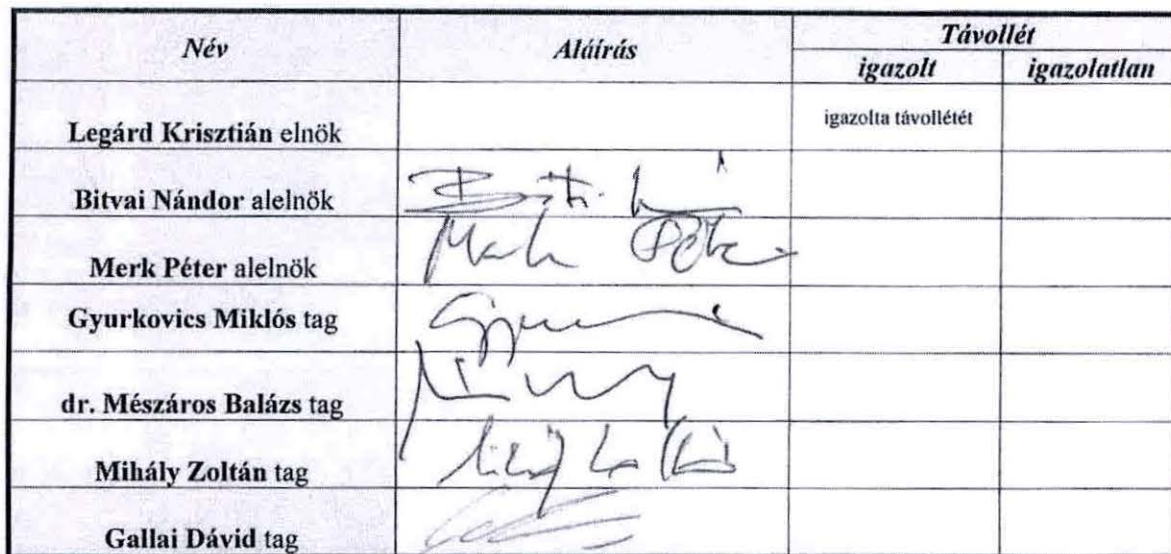 Név Aláírás Távollét
igazolt igazolatlan
Legárd Krisztián elnök igazolta távollétét
Bitvai Nándor alelnök
Merk Péter alelnök
Gyurkovics Miklós tag
dr. Mészáros Balázs tag
Mihály Zoltán tag
Gallai Dávid tag